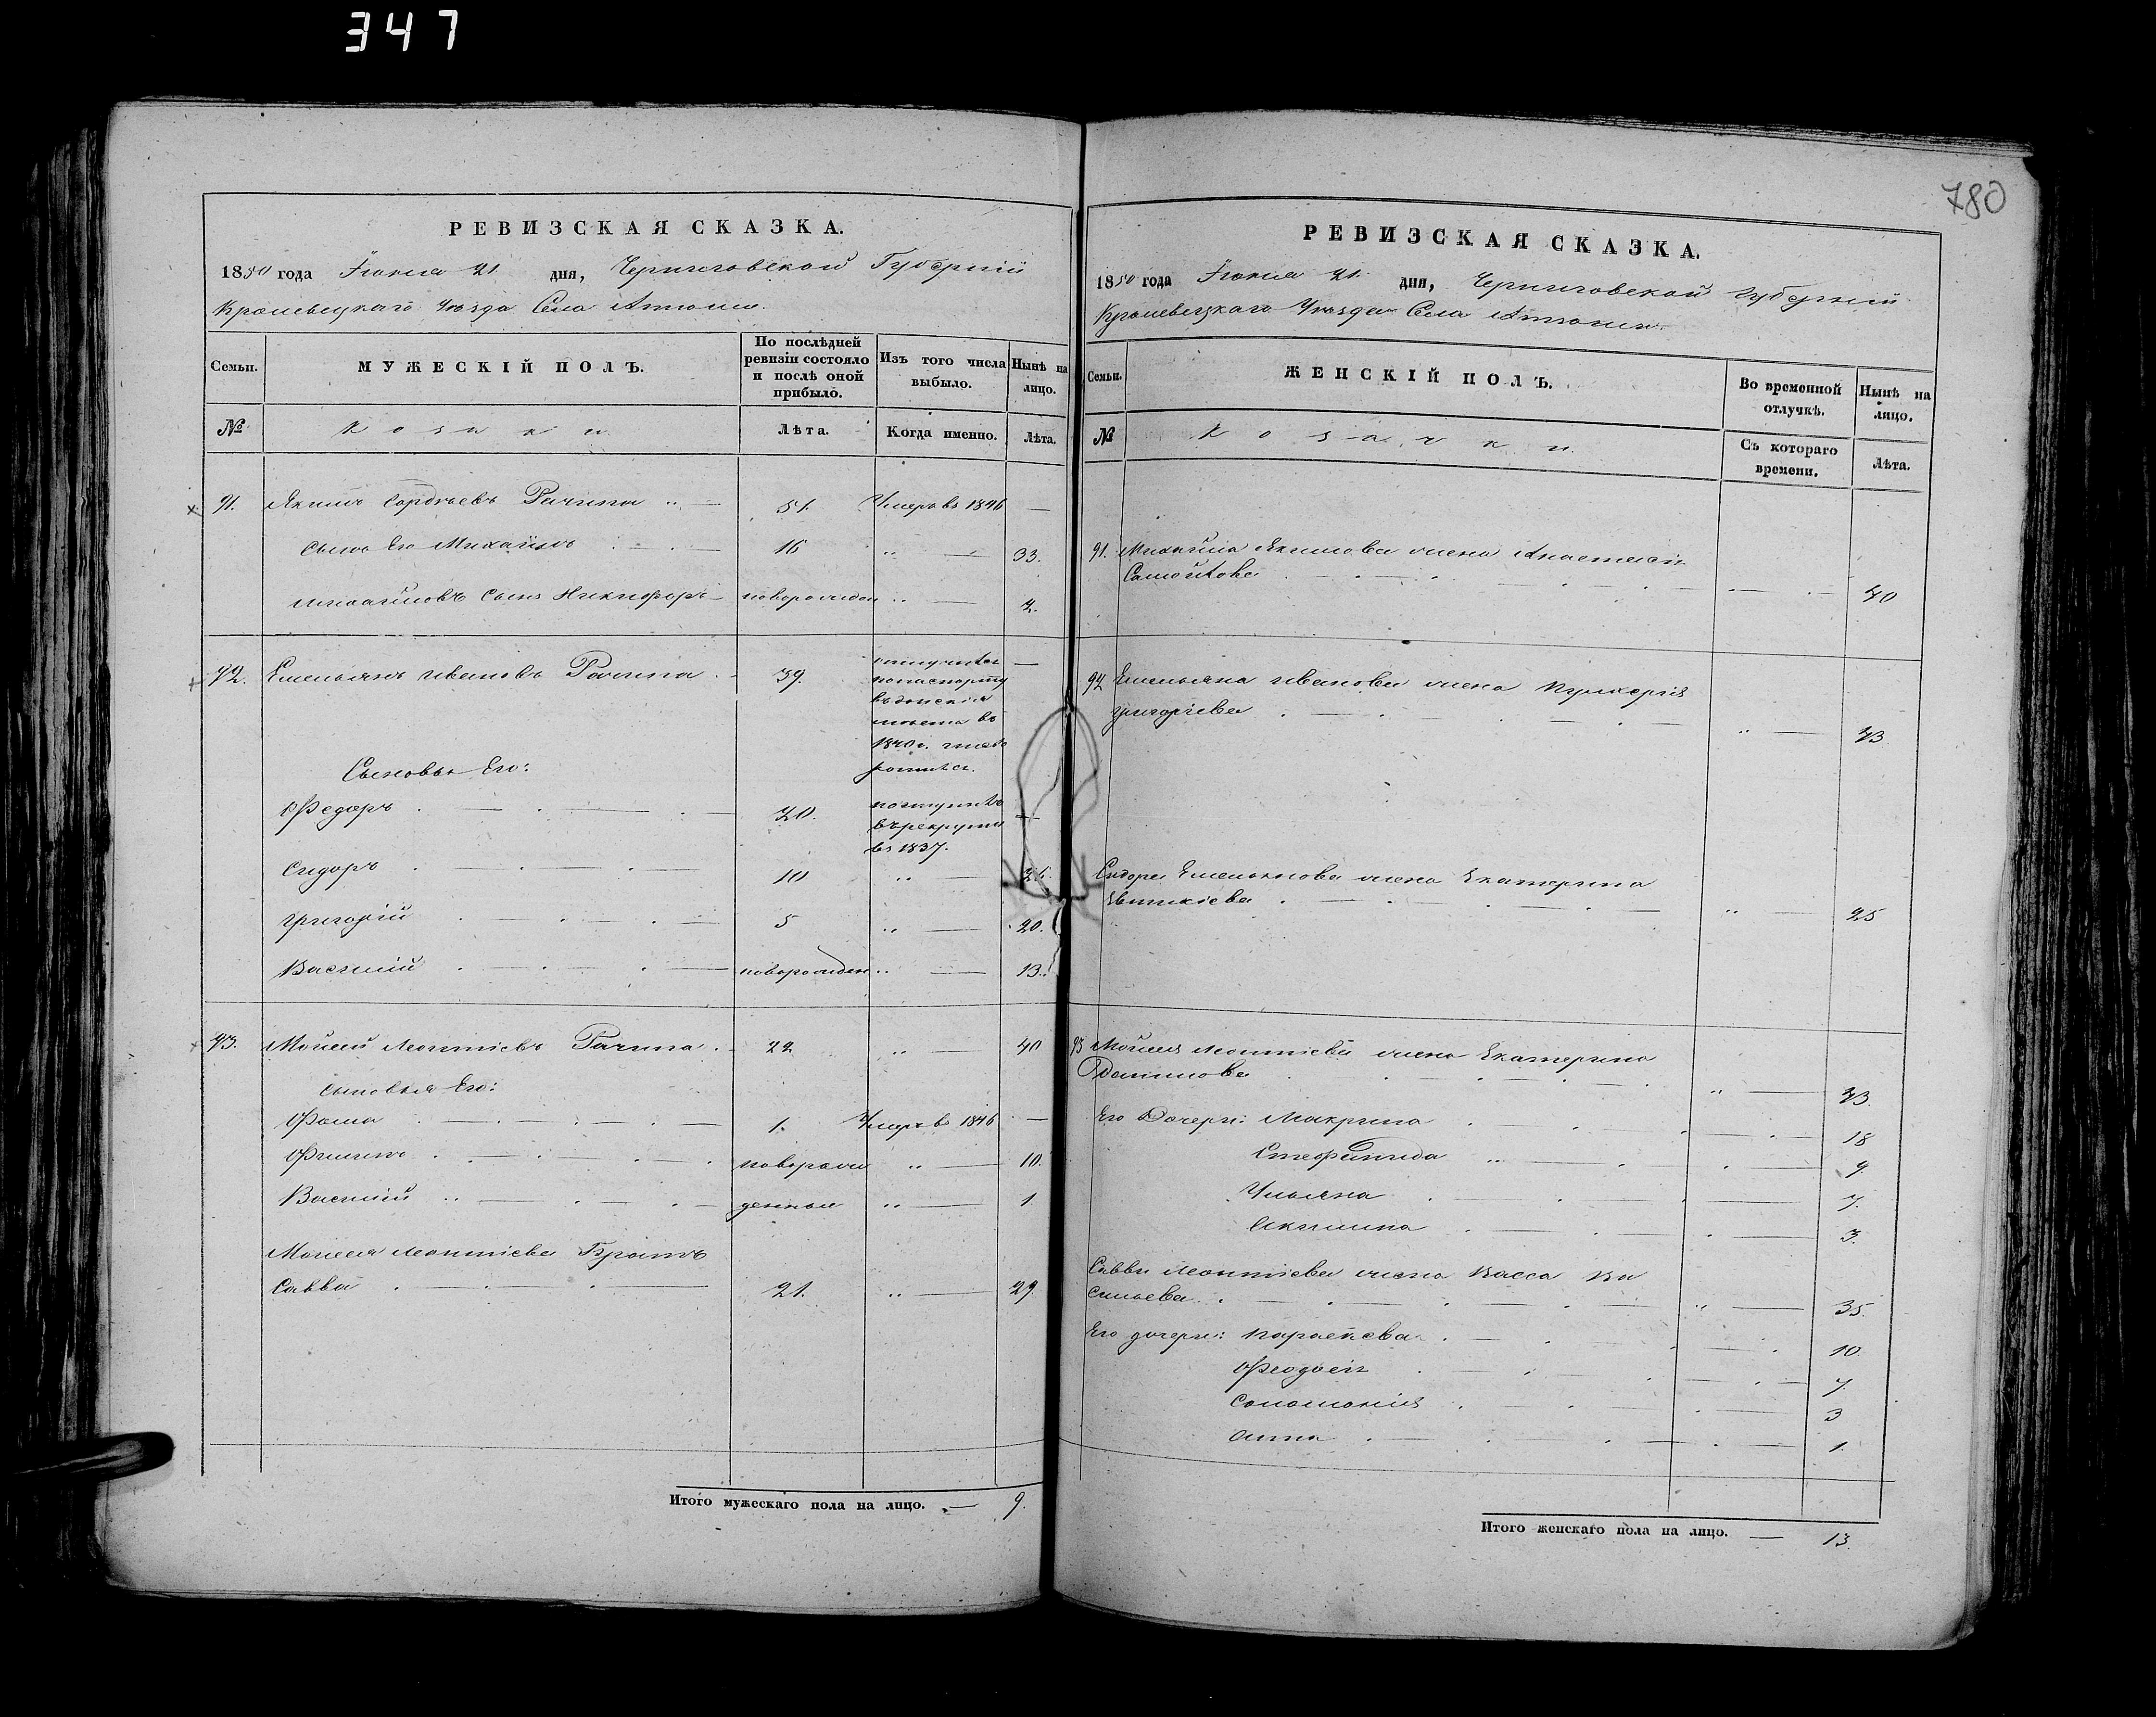 347
780
РЕВИЗСКАЯ СКАЗКА.
1850 года Іюня 21 дня, Черниговской Губерніи
Кролевецкаго Уѣзда Села
Семьи.
МУЖЕСКІЙ ПОЛЪ.
По послѣдней ревизіи состояло и послѣ оной прибыло.
Изъ того числа выбыло.
Нынѣ на лицо.
№
Козаки
Лѣта.
Когда именно.
Лѣта.
91. Якимъ Рачина 51. Умеръ въ 1846 —
Сынъ Его Михайлъ 16 33.
Михайловъ Сынъ Никифоръ новорожден 2.
92. Емельянъ Ивановъ Рачина 39. —
по паспорту
въ донскія
въ
1840 г.
Сыновья Его:
Федоръ 20. поступилъ —
въ рекруты
въ 1837.
Сидоръ 10
Григорій 5 20.
Василій новорожден 13.
93. Мойсей Леонтіевъ Рачина 22 40
Сыновья Его:
Фома 1. Умеръ въ 1846 —
Филипъ новорож 10.
Василій денные 1
Мойсея Леонтіева Братъ
Савва 21. 29.
Итого мужескаго пола на лицо. — 9.
РЕВИЗСКАЯ СКАЗКА.
1850 года Іюня 21. дня, Черниговской Губерніи
Кролевецкаго Уѣзда Села
Семьи.
ЖЕНСКІЙ ПОЛЪ.
Во временной отлучкѣ.
Нынѣ на лицо.
№
Козачки.
Съ котораго времени.
Лѣта.
91. Михайла Якимова жена Анастасія
Самойлова
92 Емельяна Иванова жена Пулхерія
Григоріева
Сидора Емельянова жена Екатерина
Евтихіева 25
93 Мойсея Леонтіева жена Екатерина
Данилова
Его Дочери: Макрина 18
Стефанида 9
Ульяна 7.
Акилина 3.
Саввы Леонтіева жена Васса Ва
сильева 35.
Его дочери: Параскева 10
Феодосія 7
Соломонія 3
Анна 1.
Итого женскаго пола на лицо. — 13.